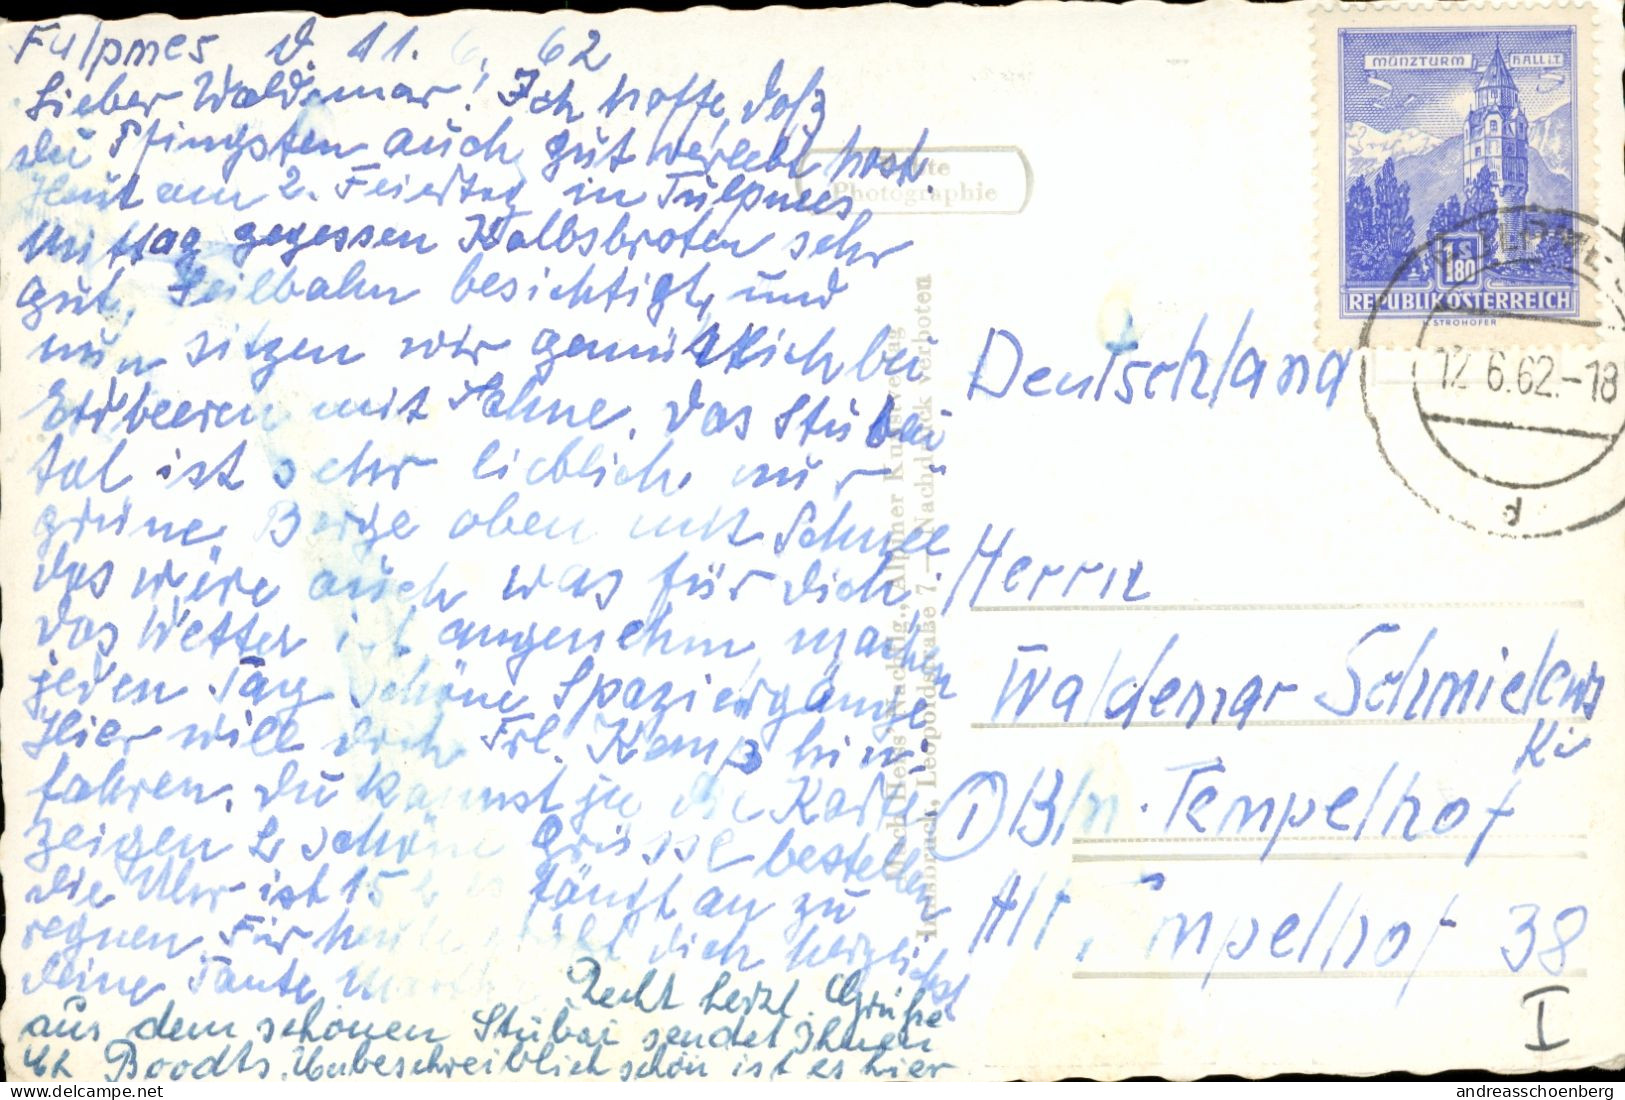 Fulpmes d. 11. 6. 62
Lieber Waldemar! Ich hoffe, daß
du Pfingsten auch gut verlebt hast.
Heut am 2. Feiertag in Fulpmes
Mittag gegessen Kalbsbraten sehr
gut, Seilbahn besichtigt, und
nun sitzen wir gemütlich bei
Erdbeeren mit Sahne. Das Stubai
tal ist sehr lieblich nur
grüne Berge oben mit Schnee
das wäre auch was für dich.
Das Wetter ist angenehm machen
jeden Tag schöne Spaziergänge
Hier will doch Frl. Kamp hin-
fahren. Du kannst ja die Karte
zeigen & schöne Grüsse bestellen
die Uhr ist 15 h es fängt an zu
regnen. Für heute grüßt dich herzlichst
deine Tante Martha
Recht herzl. Grüße
aus dem schönen Stubai sendet Ihnen
Boodts. Unbeschreiblich schön ist es hier
Echte
Photographie
Much Heiss' Nachflg., Alpiner Kunstverlag
Innsbruck, Leopoldstraße 7. — Nachdruck verboten
MÜNZTURM HALL I.T.
1 S 80
REPUBLIK ÖSTERREICH
STROHOFER
12.6.62.-18
d
Deutschland
Herrn
Waldemar Schmielewski
① Bln. Tempelhof
Alt Tempelhof 38
I
delcampe.net
andreasschoenberg